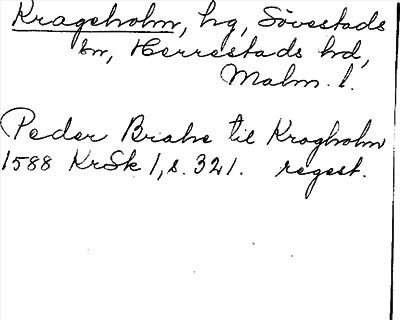 Krageholm, hg, Sövestads
sn, Herrestads hd,
Malm. l.
Peder Brahe til Kragholm
1588 KrSk 1, s. 321. regest.